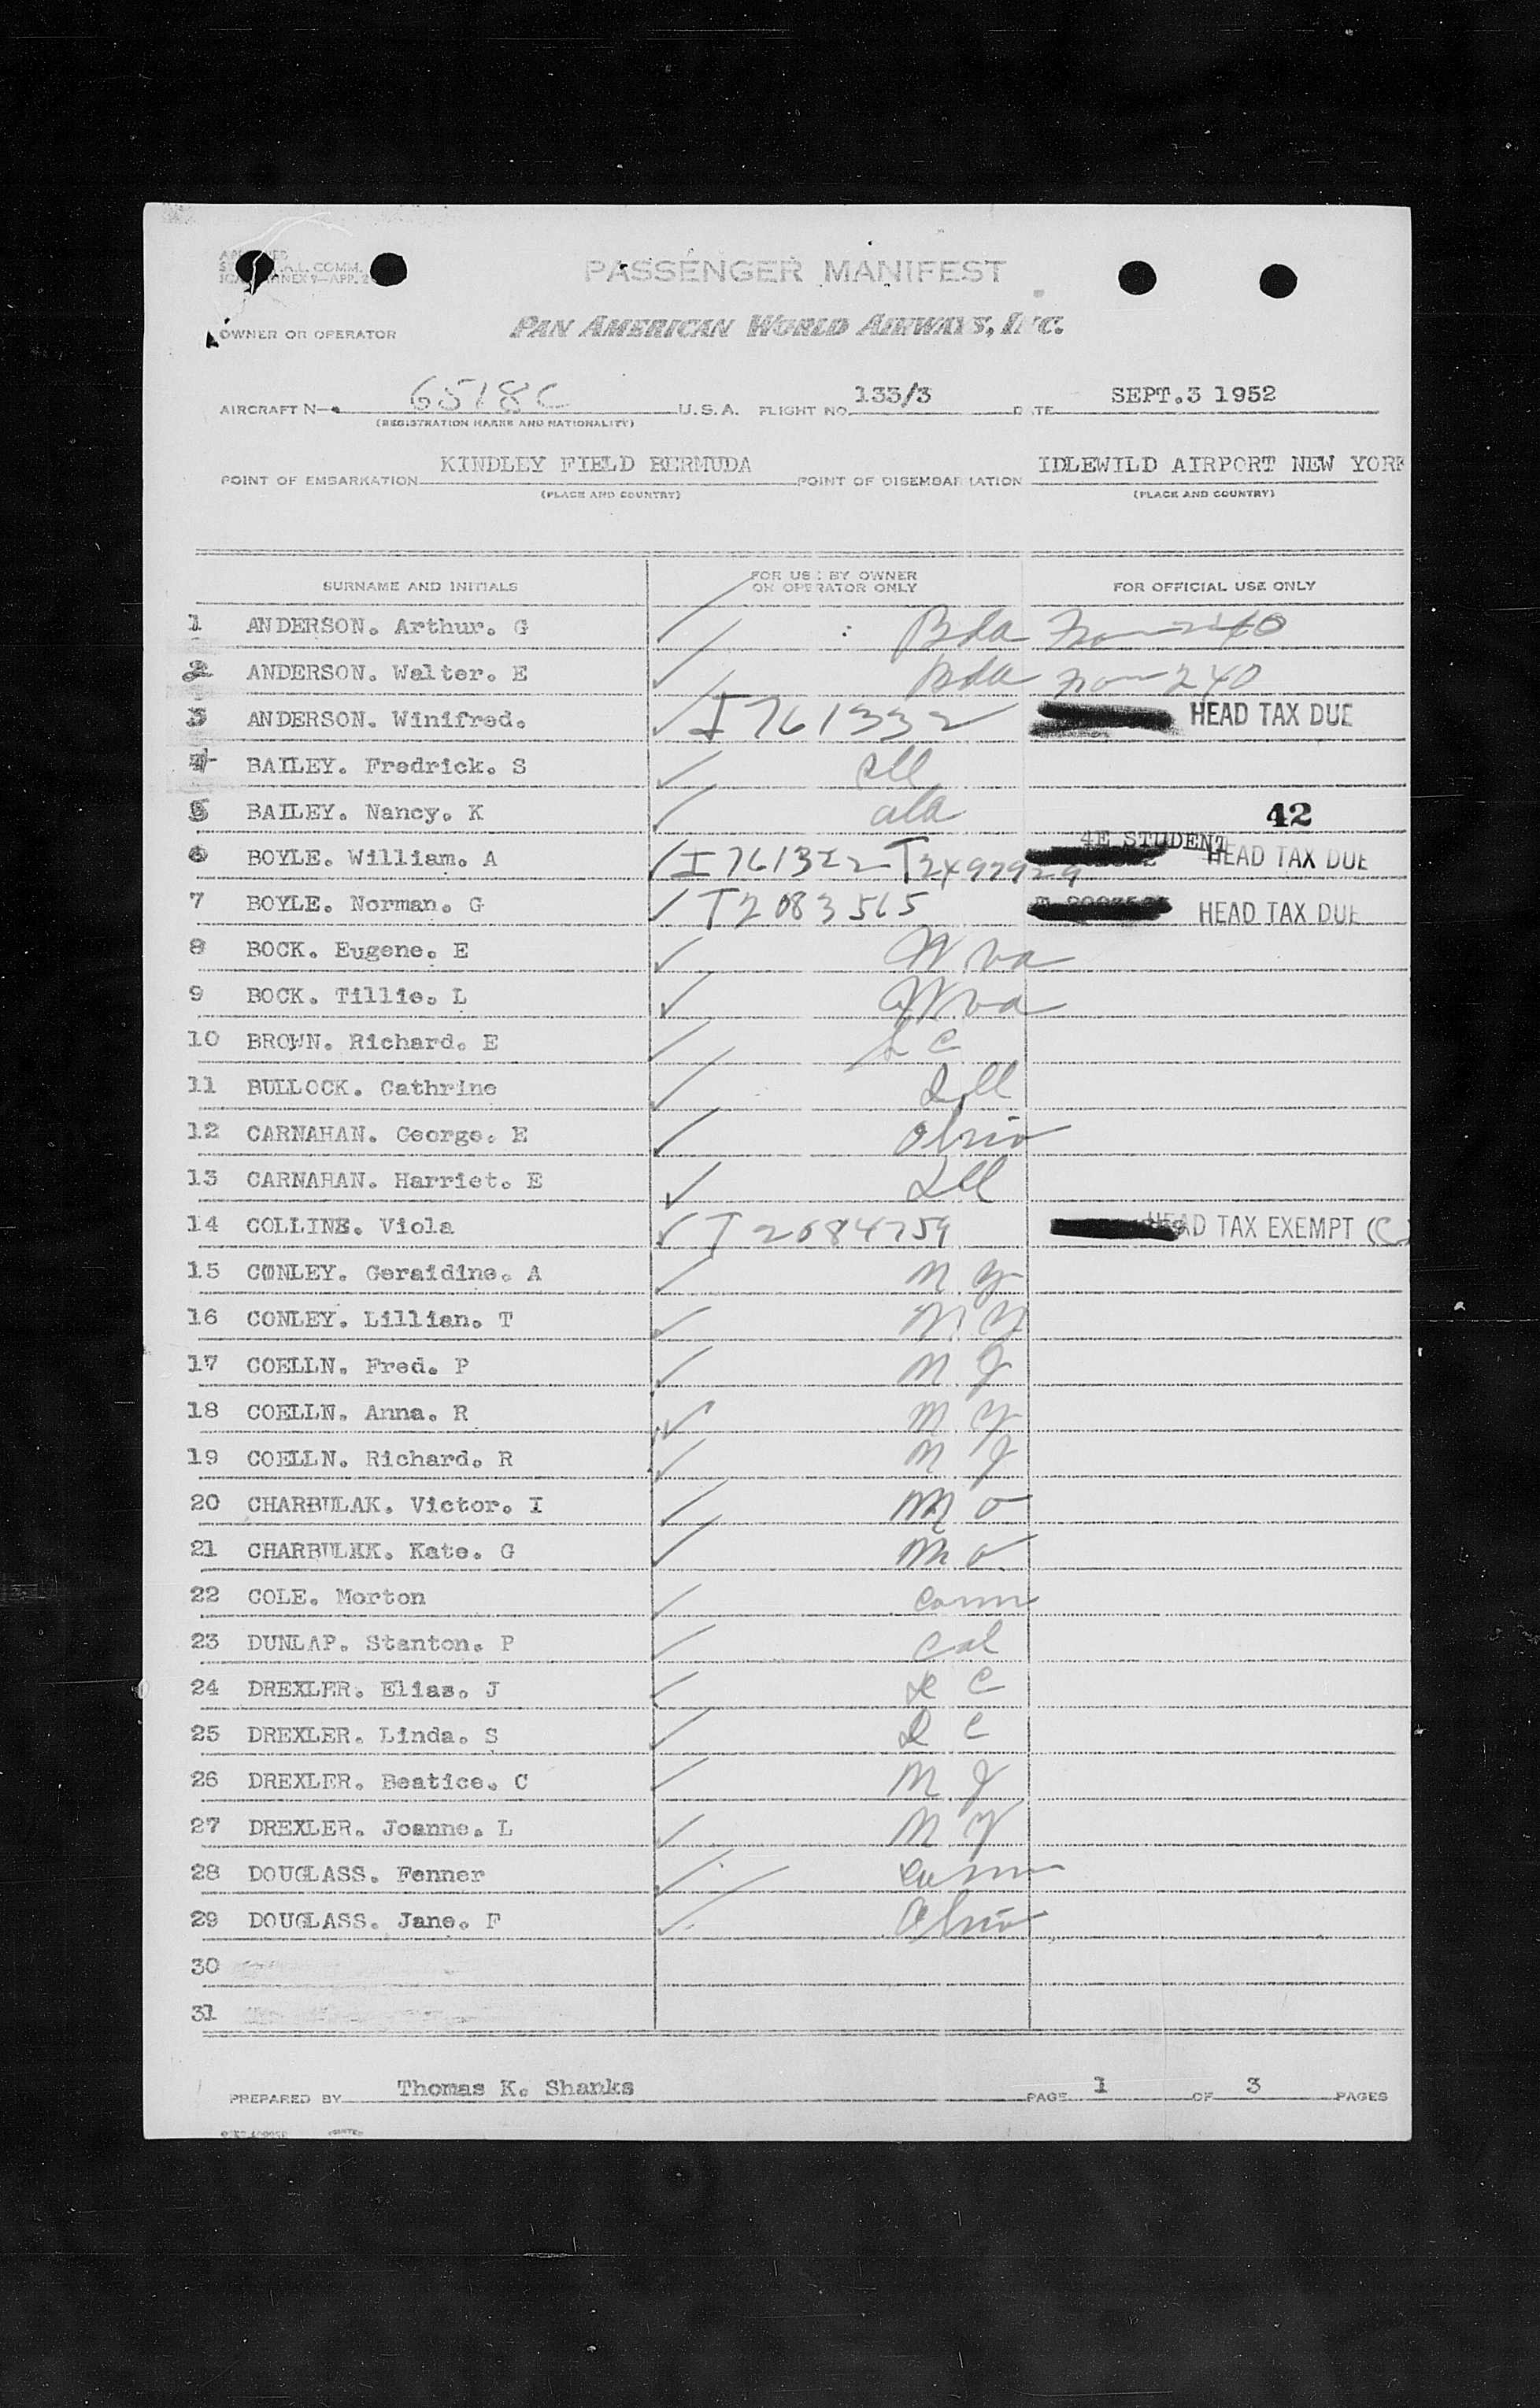 PASSENGER MANIFEST
OWNER OR OPERATOR PAN AMERICAN WORLD AIRWAYS, INC.
AIRCRAFT N- 6518C U.S.A. FLIGHT NO. 133/3 DATE SEPT.3 1952
(REGISTRATION MARKS AND NATIONALITY)
POINT OF EMBARKATION KINDLEY FIELD BERMUDA POINT OF DISEMBARKATION IDLEWILD AIRPORT NEW YORK
(PLACE AND COUNTRY) (PLACE AND COUNTRY)
SURNAME AND INITIALS FOR USE BY OWNER OR OPERATOR ONLY FOR OFFICIAL USE ONLY
1 ANDERSON. Arthur. G Bda
2 ANDERSON. Walter. E Bda 240
3 ANDERSON. Winifred. I761332 HEAD TAX DUE
4 BAILEY. Fredrick. S
5 BAILEY. Nancy. K ala 42
6 BOYLE. William. A I761322 T2497929 4E STUDENT HEAD TAX DUE
7 BOYLE. Norman. G T2083565 HEAD TAX DUE
8 BOCK. Eugene. E W Va
9 BOCK. Tillie. L W Va
10 BROWN. Richard. E
11 BULLOCK. Cathrine Ill
12 CARNAHAN. George. E Ohio
13 CARNAHAN. Harriet. E Ill
14 COLLINS. Viola T2084759 HEAD TAX EXEMPT (C
15 CONLEY. Geraldine. A N Y
16 CONLEY. Lillian. T N Y
17 COELLN. Fred. P N J
18 COELLN. Anna. R N Y
19 COELLN. Richard. R N J
20 CHARBULAK. Victor. I Mo
21 CHARBULAK. Kate. G Mo
22 COLE. Morton Conn
23 DUNLAP. Stanton. P Cal
24 DREXLER. Elias. J D C
25 DREXLER. Linda. S D C
26 DREXLER. Beatice. C N J
27 DREXLER. Joanne. L N Y
28 DOUGLASS. Fenner Conn
29 DOUGLASS. Jane. F Ohio
30
31
PREPARED BY Thomas K. Shanks PAGE 1 OF 3 PAGES